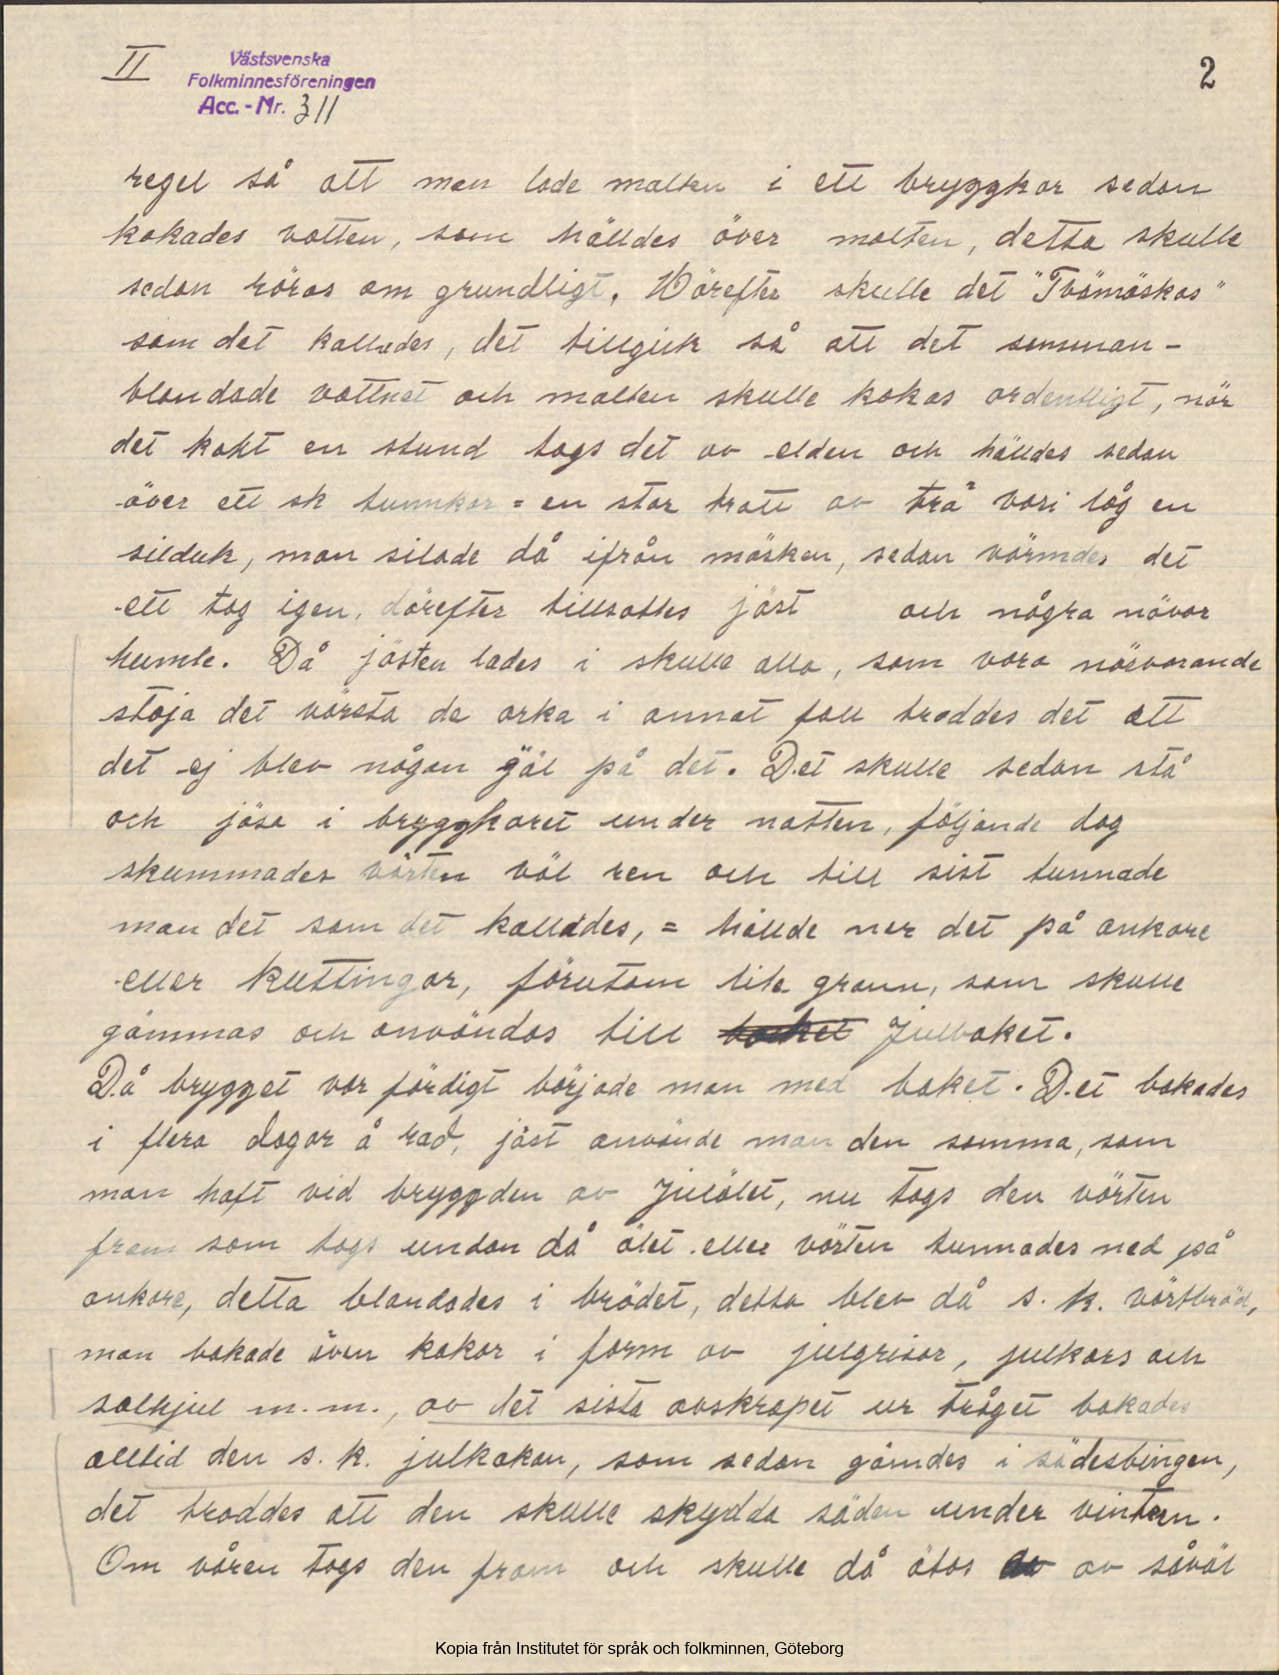 II
Västsvenska
Folkminnesföreningen
Acc. - Nr. 311
2
regel så att man lade malten i ett bryggkar sedan
kokades vatten, som hälldes över malten, detta skulle
sedan röras om grundligt. Därefter skulle det "Tvämäskas"
som det kallades, det tillgick så att det samman-
blandade vattnet och malten skulle kokas ordentligt, när
det kokt en stund togs det av elden och hälldes sedan
över ett sk tunnkar = en stor tratt av trä vari låg en
silduk, man silade då ifrån mäsken, sedan värmdes det
ett tag igen, därefter tillsattes jäst och några nävar
humle. Då jästen lades i skulle alla, som voro närvarande
stoja det värsta de orka i annat fall troddes det att
det ej blev någon gäl på det. Det skulle sedan stå
och jäsa i bryggkaret under natten, följande dag
skummades vörten väl ren och till sist tunnade
man det som det kallades, = hällde ner det på ankare
eller kuttingar, förutom lite grann, som skulle
gömmas och användas till baket Julbaket.
Då brygget var färdigt började man med baket. Det bakades
i flera dagar å rad, jäst använde man den samma, som
man haft vid bryggden av Julölet, nu togs den vörten
fram som togs undan då ölet eller vörten tunnades ned på
ankare, detta blandades i brödet, detta blev då s. k. vörtbröd,
man bakade även kakor i form av julgrisar, julkors och
solhjul m. m., av det sista avskrapet ur tråget bakades
alltid den s. k. julkakan, som sedan gömdes i sädesbingen,
det troddes att den skulle skydda säden under vintern.
Om våren togs den fram och skulle då ätas av såväl
Kopia från Institutet för språk och folkminnen, Göteborg